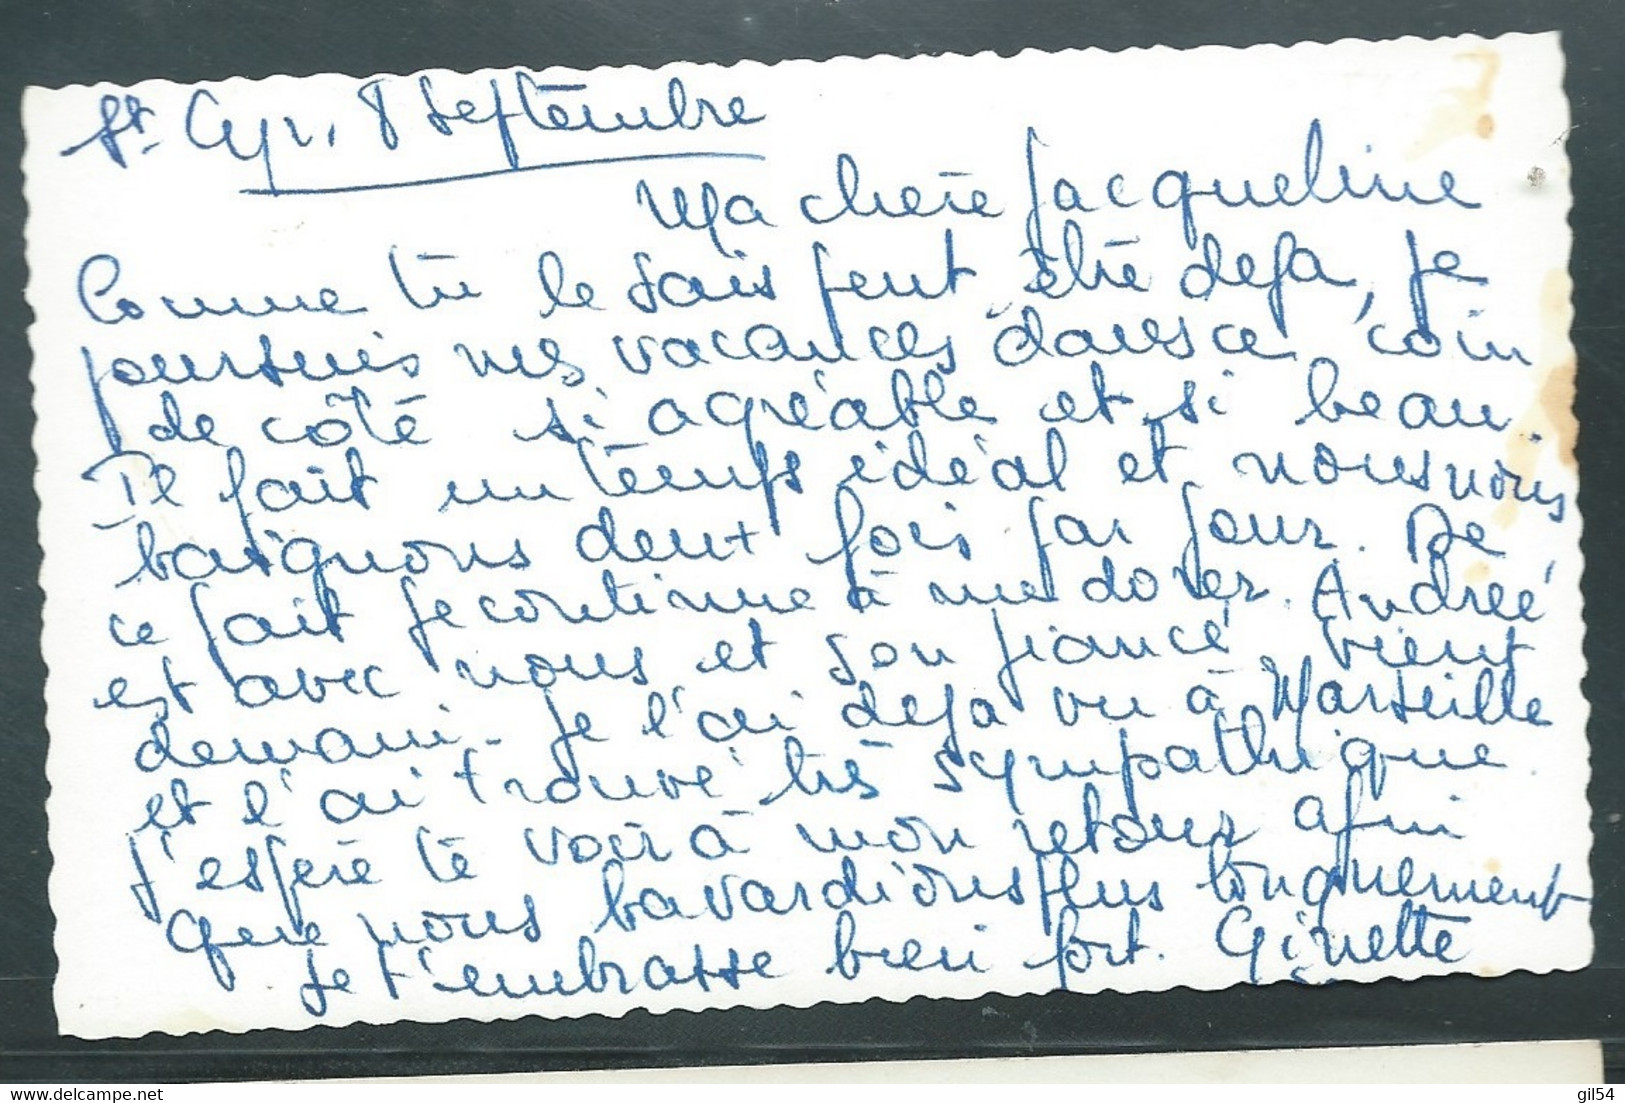 St. Cyr, 8 septembre
Ma chère Jacqueline
Comme tu le sais peut être deja, je
poursuis mes vacances dans ce coin
de côté si agréable et si beau.
Il fait un temps idéal et nous nous
baignons deux fois par jour. De
ce fait je continue à me dorer. Andrée
est avec nous et son fiancé vient
demain. Je l'ai deja vu à Marseille
et l'ai trouvé très sympathique.
J'espère te voir à mon retour afin
que nous bavardions plus longuement
Je t'embrasse bien fort. Ginette
https://www.delcampe.net
gil54